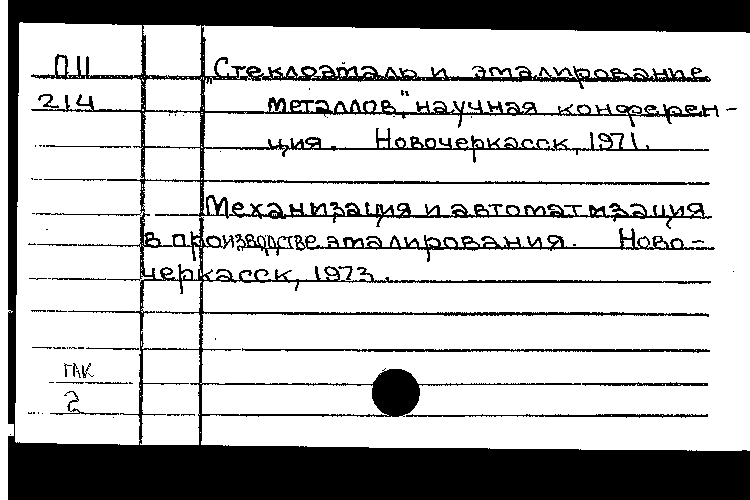 П11
214
"Стеклоэмаль и эмалирование
металлов," научная конферен-
ция. Новочеркасск, 1971.
Механизация и автоматизация
в производстве эмалирования. Ново-
черкасск, 1973.
ГАК
2